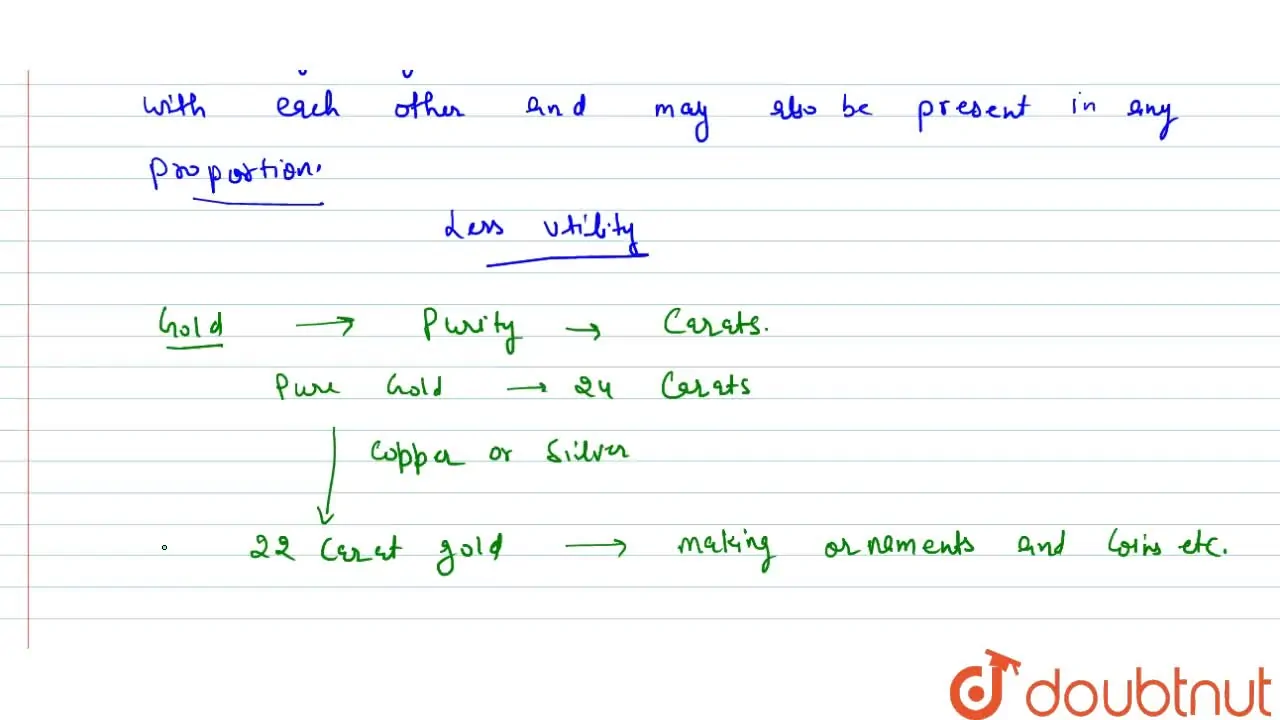 with each other and may also be present in any
proportion.
Less utility
Gold → Purity → Carats.
Pure Gold → 24 Carats
Copper or Silver
22 Carat gold → making ornaments and Coins etc.
doubtnut